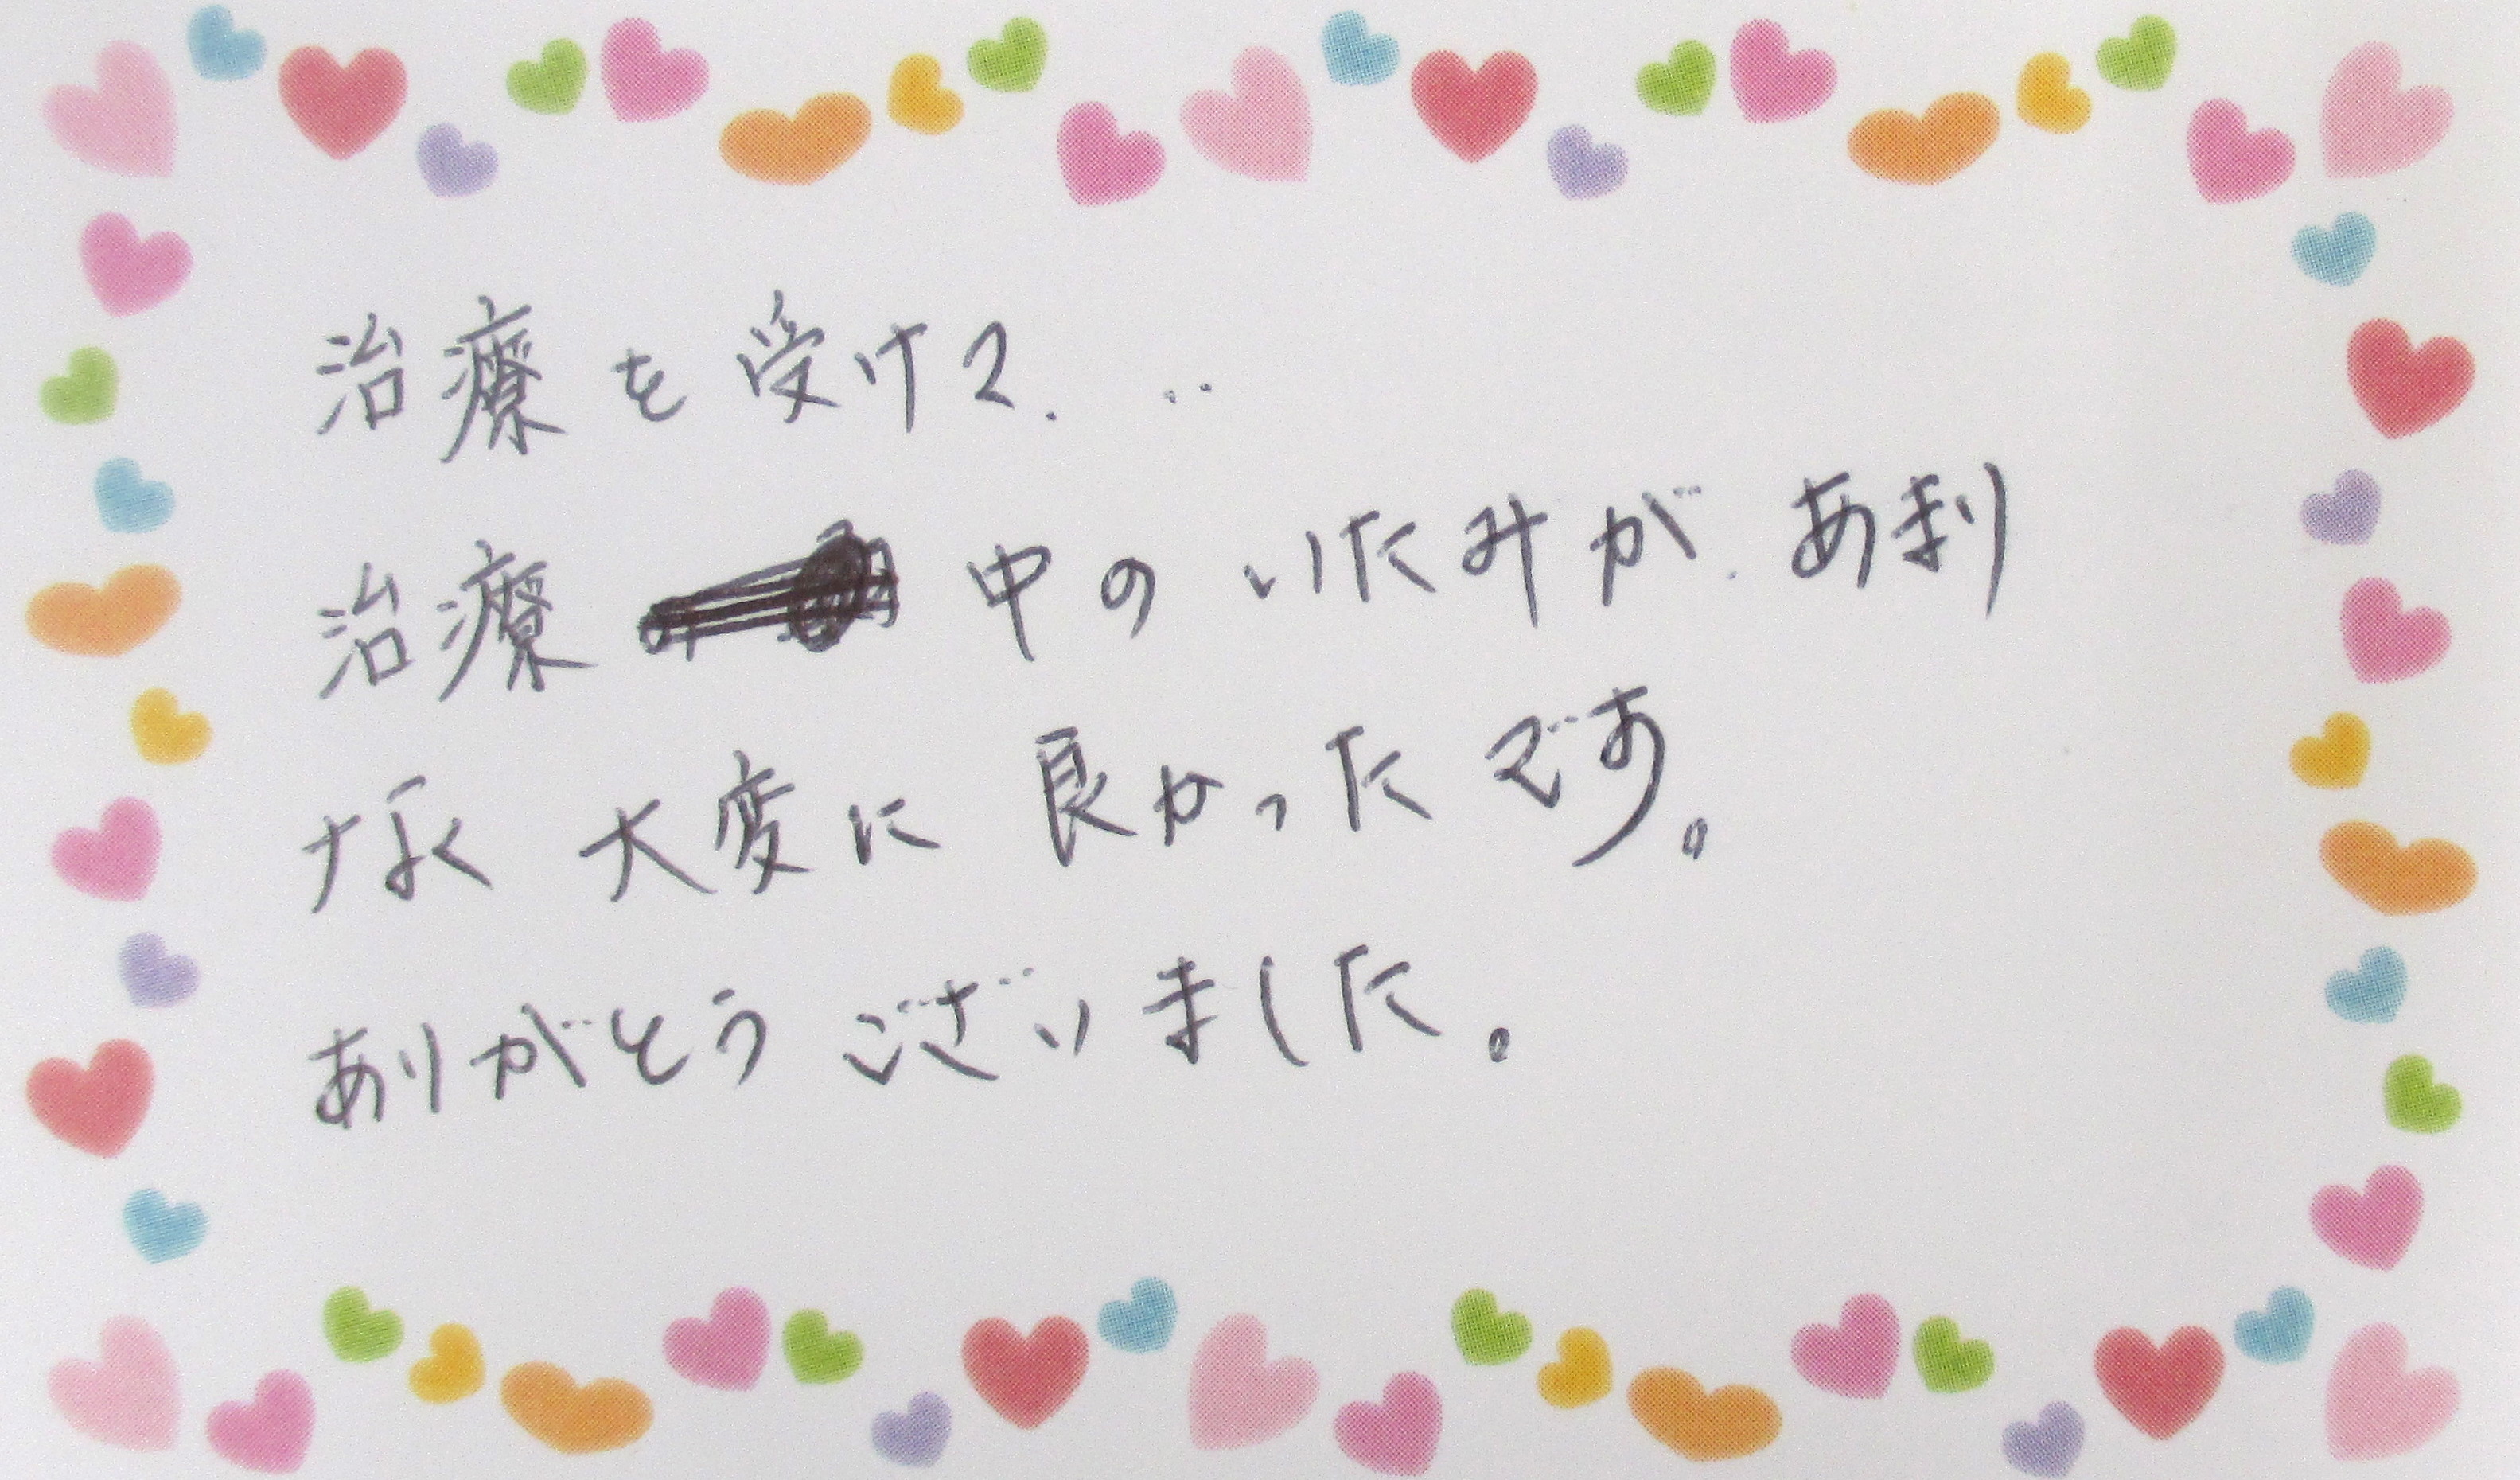 治療を受けて. ‥
治療 中の いたみが. あまり
なく 大変に 良かったです。
ありがとう ございました。